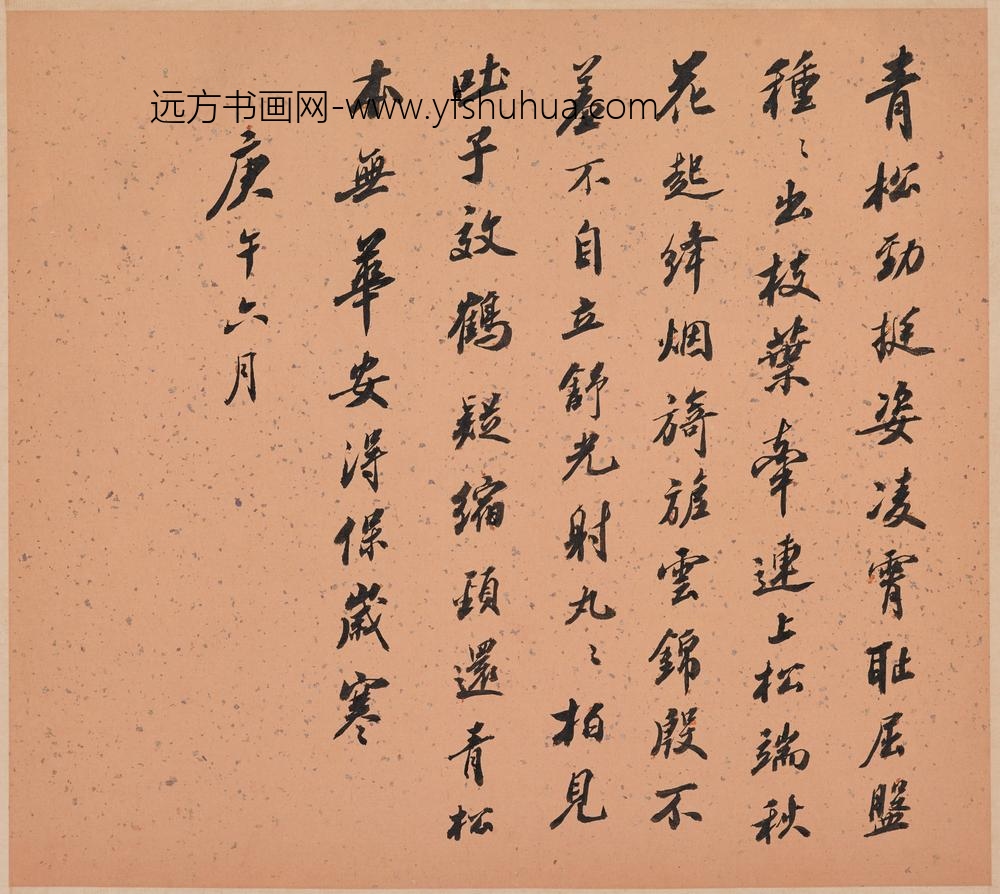 青松勁挺姿凌霄耻屈盤
種〻出枝葉牽連上松端秋
花起絳烟旖旎雲錦殷不
羞不自立舒光射丸〻柏見
吐子效鶴疑縮頸還青松
本無華安得保歲寒
庚午六月
远方书画网-www.yfshuhua.com